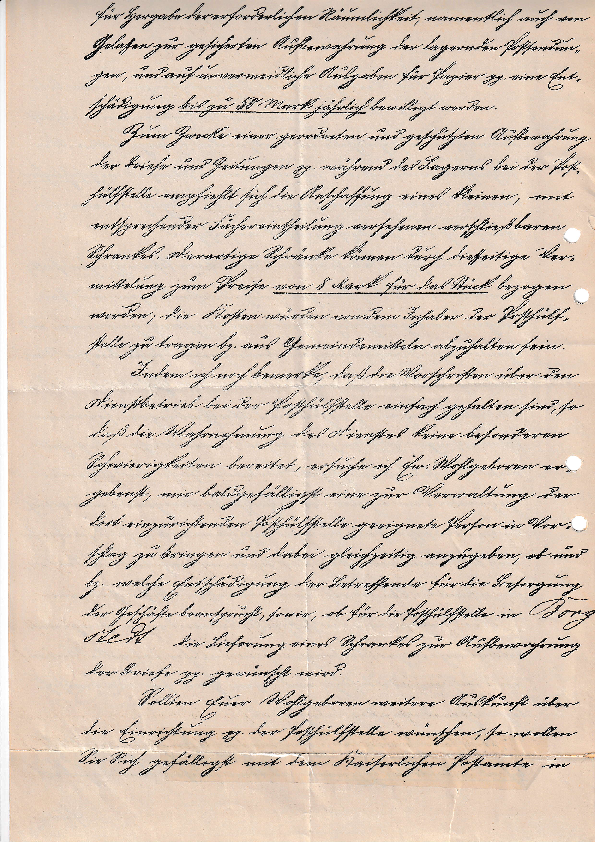 für Hergabe der erforderlichen Räumlichkeit, namentlich auch von
Gelassen zur gesicherten Aufbewahrung der lagernden Postsendun-
gen, und auf unvermeidliche Ausgaben für Papier pp eine Ent-
schädigung bis zu 50 Mark jährlich bewilligt werden.
Zum Zwecke einer geordneten und geschützten Aufbewahrung
der Briefe und Zeitungen pp während des Lagerns bei der Post-
hülfstelle empfiehlt sich die Anschaffung eines kleinen, mit
entsprechender Fächereintheilung versehenen verschließbaren
Schrankes. Derartige Schränke können durch diesseitige Ver-
mittelung zum Preise von 8 Mark für das Stück bezogen
werden; die Kosten würden von dem Inhaber der Posthülf-
stelle zu tragen bz. aus Gemeindemitteln abzuhalten sein.
Indem ich noch bemerke, daß die Vorschriften über den
Dienstbetrieb bei der Posthülfstelle einfach gehalten sind, so
daß die Wahrnehmung des Dienstes keine besonderen
Schwierigkeiten bereitet, ersuche ich Ew. Wohlgeboren er-
gebenst, mir baldgefälligst eine zur Verwaltung der
dort einzurichtenden Posthülfstelle geeignete Person in Vor-
schlag zu bringen und dabei gleichzeitig anzugeben, ob und
bz. welche Entschädigung der Betreffende für die Besorgung
der Geschäfte beansprucht, sowie, ob für die Posthülfstelle in Borg
stedt die Lieferung eines Schrankes zur Aufbewahrung
der Briefe pp. gewünscht wird.
Sollten Euer Wohlgeboren weitere Auskunft über
die Einrichtung pp der Posthülfstelle wünschen, so wollen
Sie Sich gefälligst mit dem Kaiserlichen Postamte in